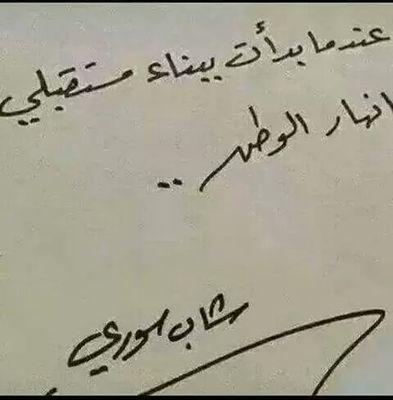 عندما بدأت ببناء مستقبلي
انهار الوطن ..
شاب سوري